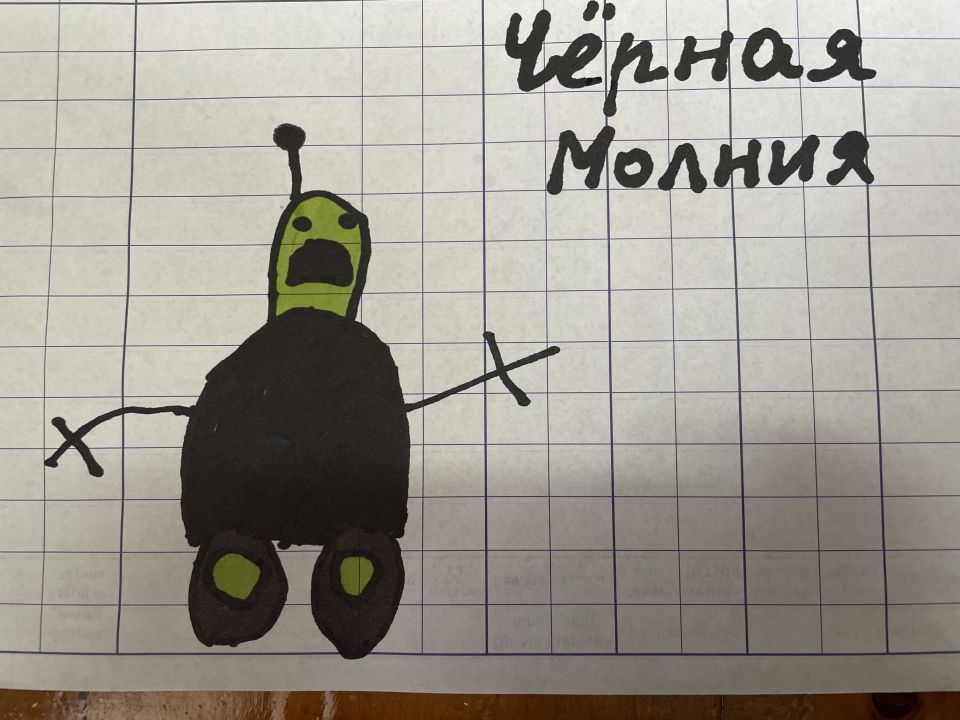 Чёрная
Молния